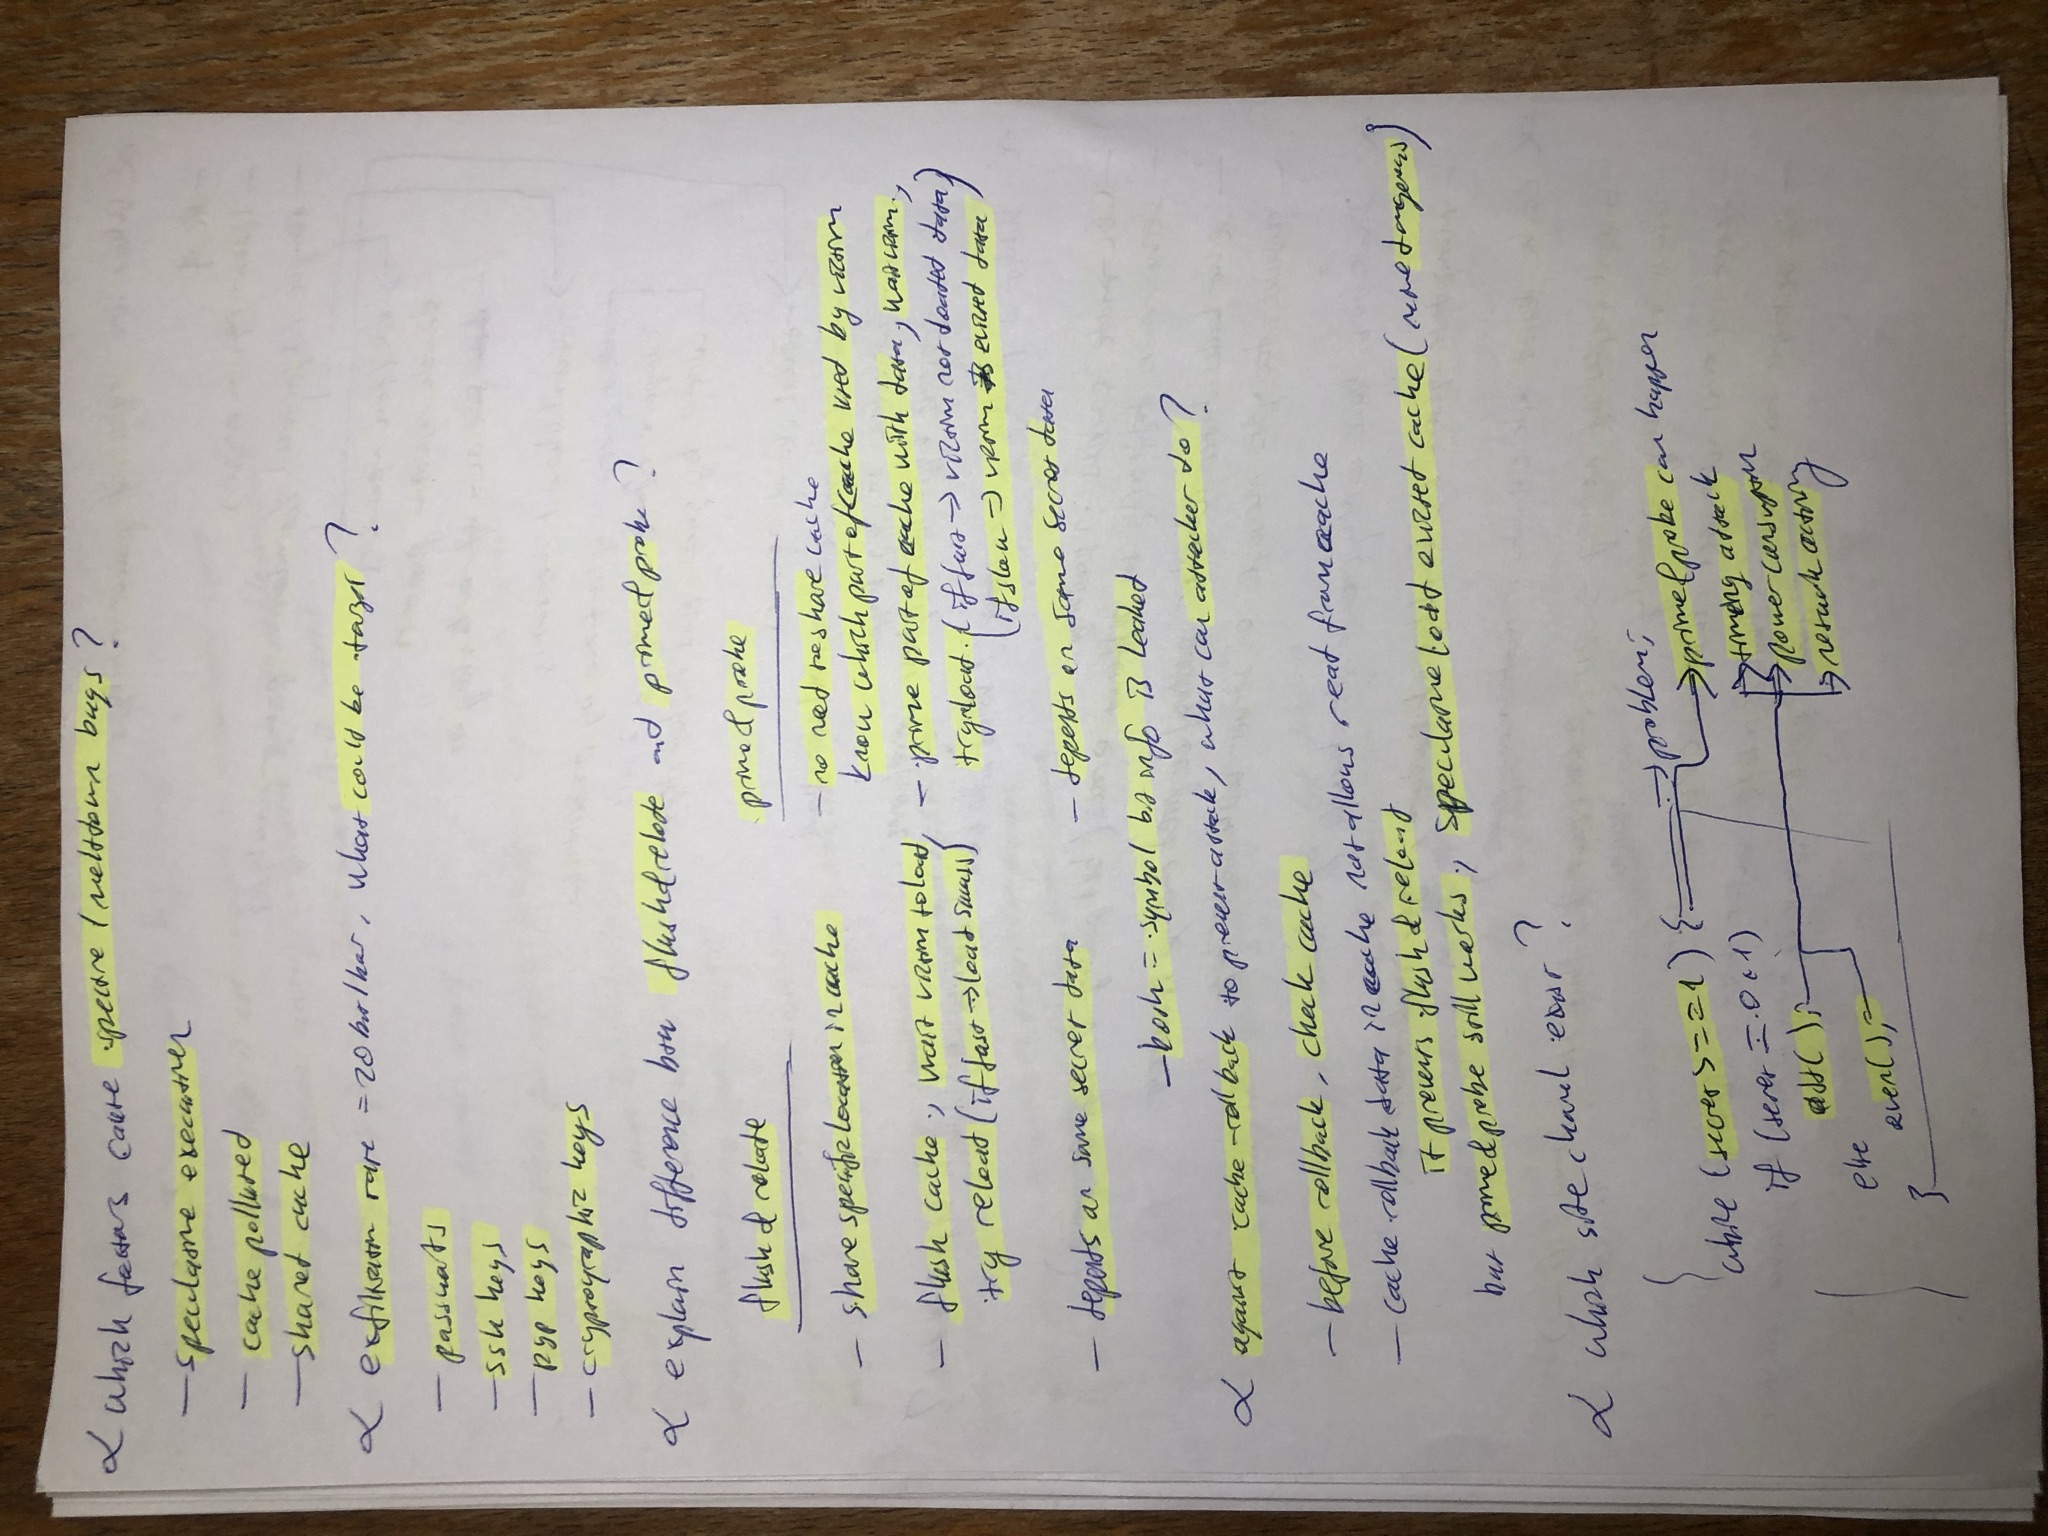 α which factors cause spectre / meltdown bugs?
— speculative execution
— cache polluted
— shared cache
α exfiltration rate = 20 bit/hour, what could be target?
— passwords
— ssh keys
— pgp keys
— cryptographic keys
α explain difference btw flush & reload and prime & probe?
flush & reload
prime & probe
— share specific location in cache
— no need to share cache
know which part of cache used by victim
— flush cache, wait victim to load,
try reload (if fast → load success)
— prime part of cache with data, wait victim,
try load. (if fast → victim not loaded data)
(if slow → victim evicted data)
— depends on some secret data
— depends on some secret data
— both = symbol bit info is leaked
α against cache-rollback to prevent attack, what can attacker do?
— before rollback, check cache
— cache-rollback data in cache not allows read from cache
it prevents flush & reload
but prime & probe still works, speculative load evicted cache (more dangerous)
α which side channel exist?
while (secret > = 1) {
→ problem:
if (secret = 0 (1)
odd();
else
even();
}
→ prime & probe can happen
→ timing attack
→ power consumption
→ network activity